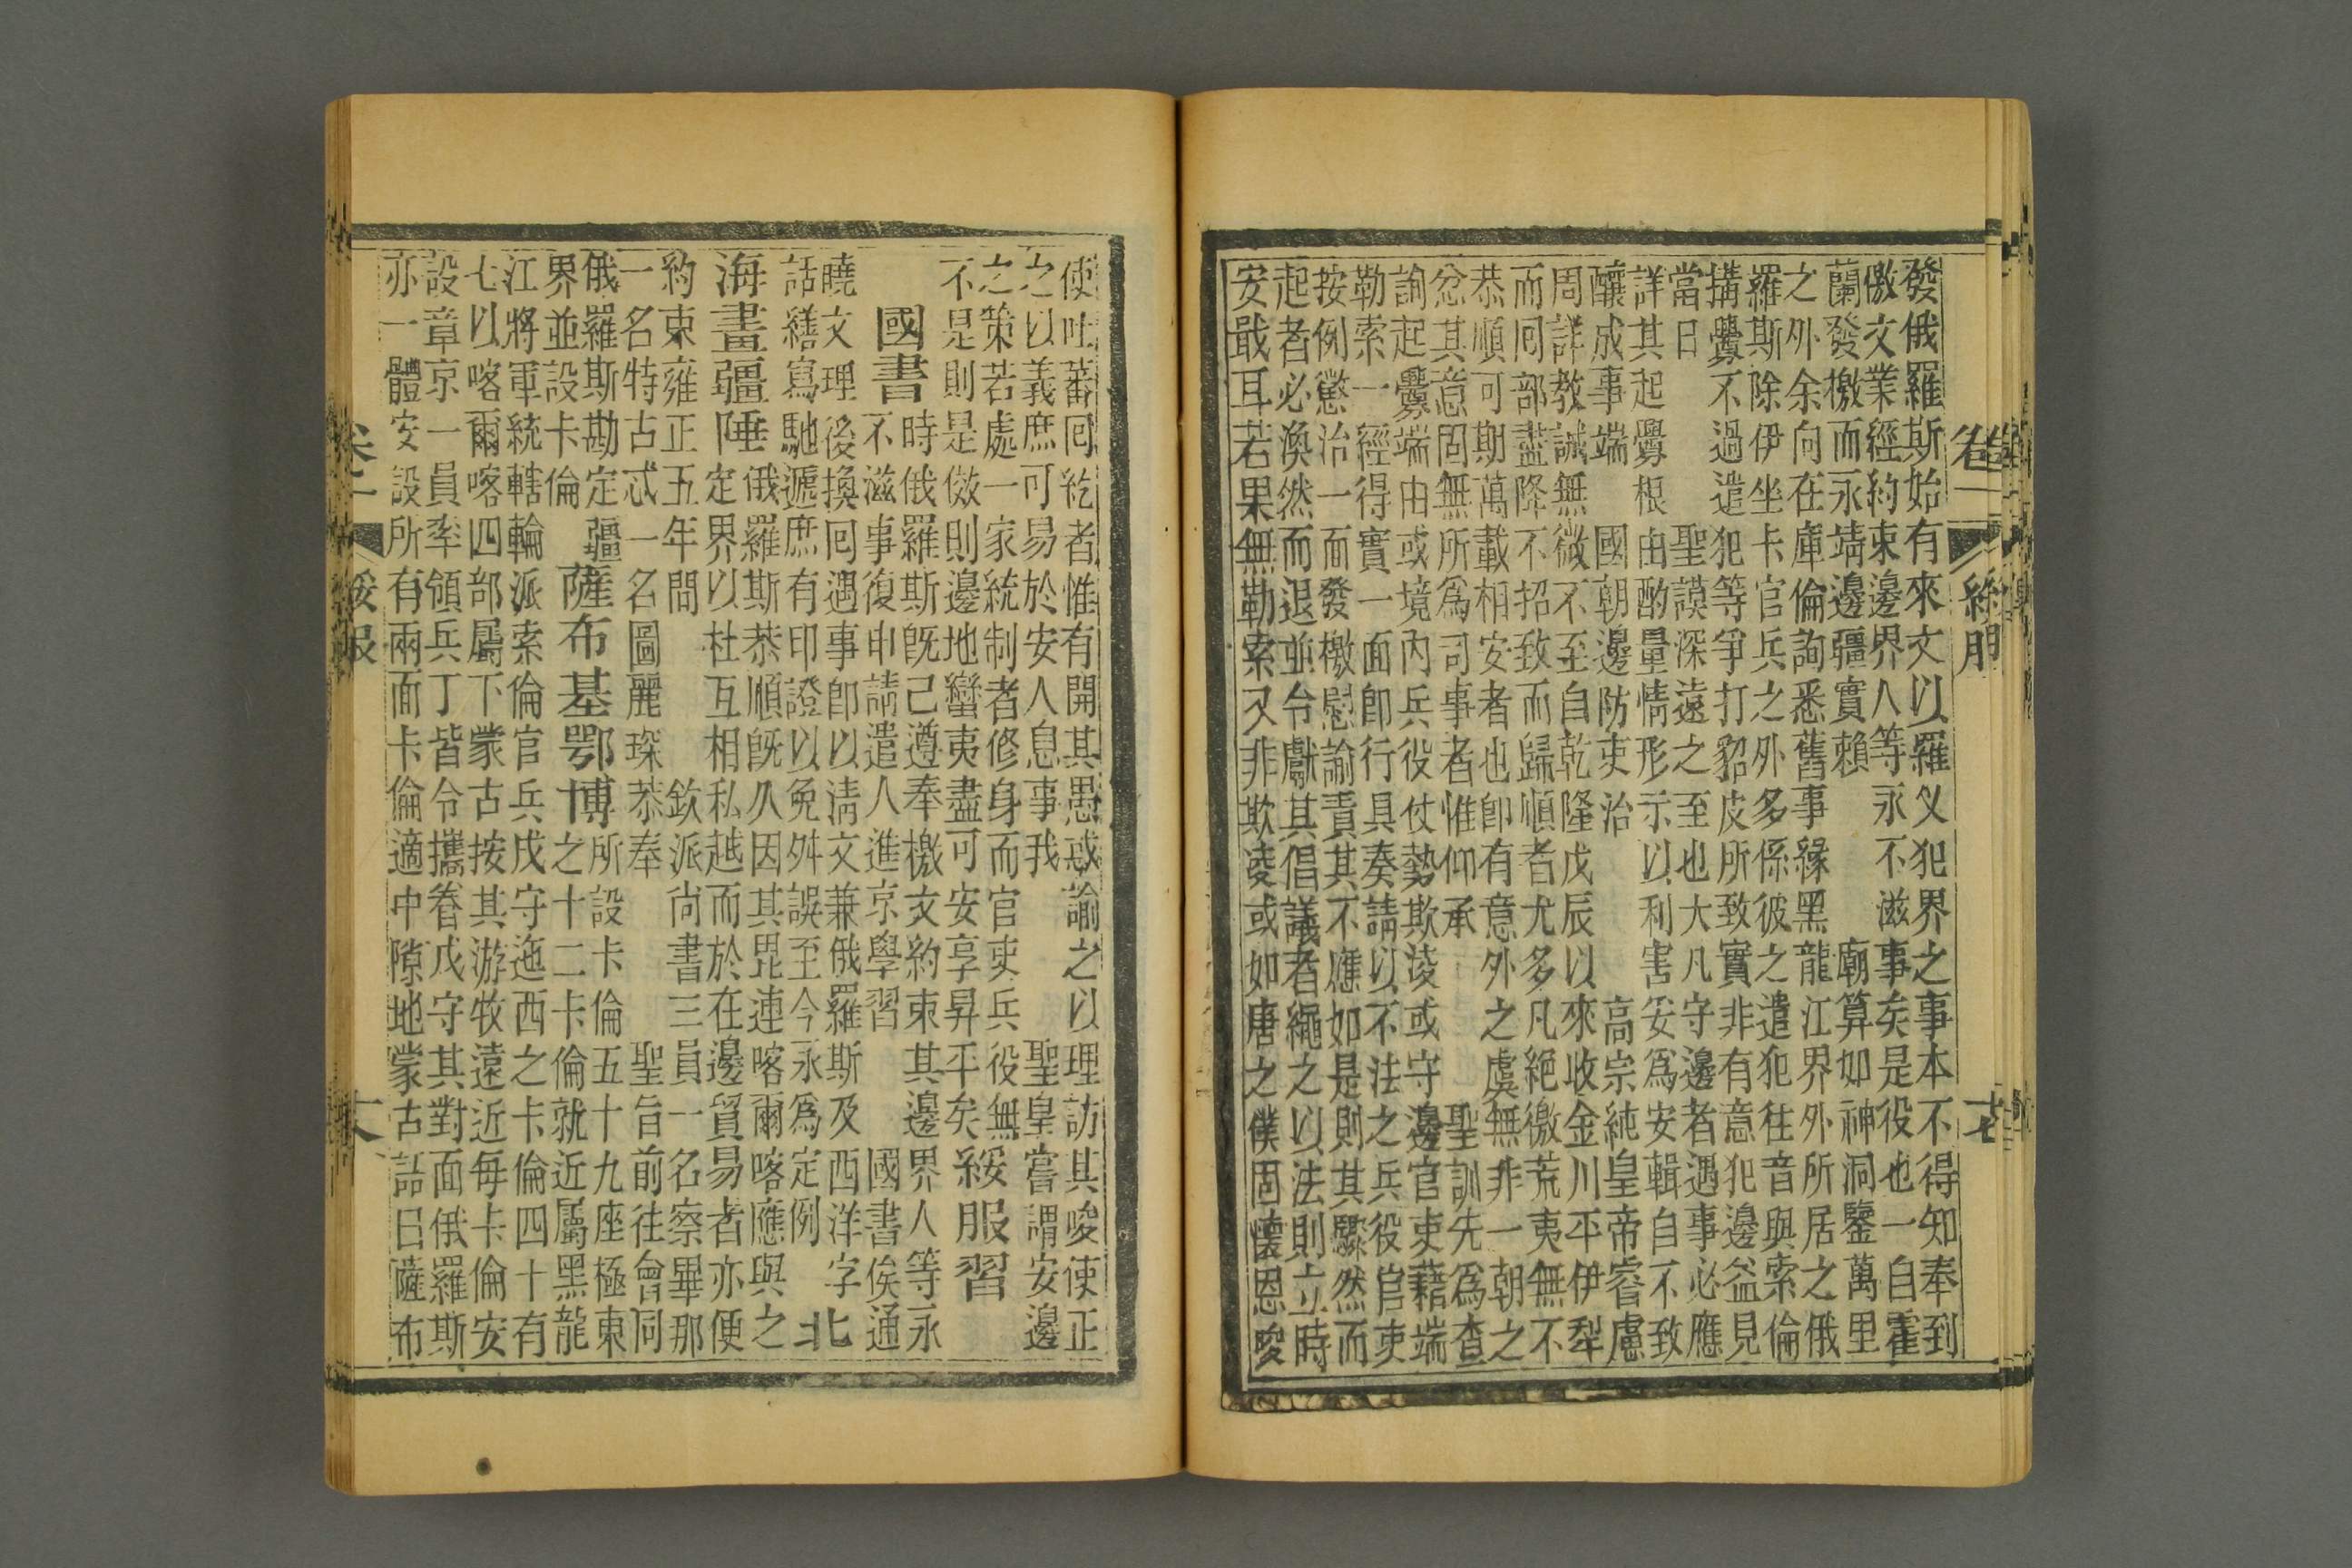 卷二　綏服　十七
發俄羅斯始有來文以羅乂犯界之事本不得知奉到
檄文業經約束邊界人等永不滋事矣是役也一自霍
蘭發檄而永靖邊疆實賴　廟算如神洞鑒萬里
之外余向在庫倫詢悉舊事緣黑龍江界外所居之俄
羅斯除伊坐卡官兵之外多係彼之遣犯往音與索倫
搆釁不過遣犯等爭打貂皮所致實非有意犯邊益見
當日　聖謨深遠之至也大凡守邊者遇事必應
詳其起釁根由酌量情形示以利害妥爲安輯自不致
釀成事端　國朝邊防吏治　高宗純皇帝睿慮
周詳教誡無微不至自乾隆戊辰以來收金川平伊犁
而囘部盡降不招致而歸順者尤多凡絕徼荒夷無不
恭順可期萬載相安者也卽有意外之虞無非一朝之
忿其意固無所爲司事者惟仰承　聖訓先爲查
詢起釁端由或境內兵役仗勢欺淩或守邊官吏藉端
勒索一經得實一面卽行具奏請以不法之兵役官吏
按例懲治一面發檄慰諭責其不應如是則其驟然而
起者必渙然而退並令獻其倡議者繩之以法則立時
安戢耳若果無勒索又非欺凌或如唐之僕固懷恩唆
使吐蕃囘紇者惟有開其愚惑諭之以理訪其唆使正
之以義庶可易於安人息事我　聖皇嘗謂安邊
之策若處一家統制者修身而官吏兵役無
不是則是儌則邊地蠻夷盡可安享昇平矣
綏服習
國書
時俄羅斯旣己遵奉檄文約束其邊界人等永
不滋事復申請遣人進京學習　國書俟通
曉文理後換囘遇事卽以淸文兼俄羅斯及西洋字
話繕寫馳遞庶有印證以免舛誤至今永爲定例
北
海畫疆陲
俄羅斯恭順旣久因其毘連喀爾喀應與之
定界以杜互相私越而於在邊貿易者亦便
約束雍正五年間　欽派尚書三員一名察畢那
一名特古忒一名圖麗琛恭奉　聖旨前往會同
俄羅斯勘定疆
界並設卡倫
薩布基鄂博
所設卡倫五十九座極東
之十二卡倫就近屬黑龍
江將軍統轄輪派索倫官兵戍守迤西之卡倫四十有
七以喀爾喀四部屬下蒙古按其游牧遠近每卡倫安
設章京一員率領兵丁皆令攜眷戍守其對面俄羅斯
亦一體安設所有兩面卡倫適中隙地蒙古語曰薩布